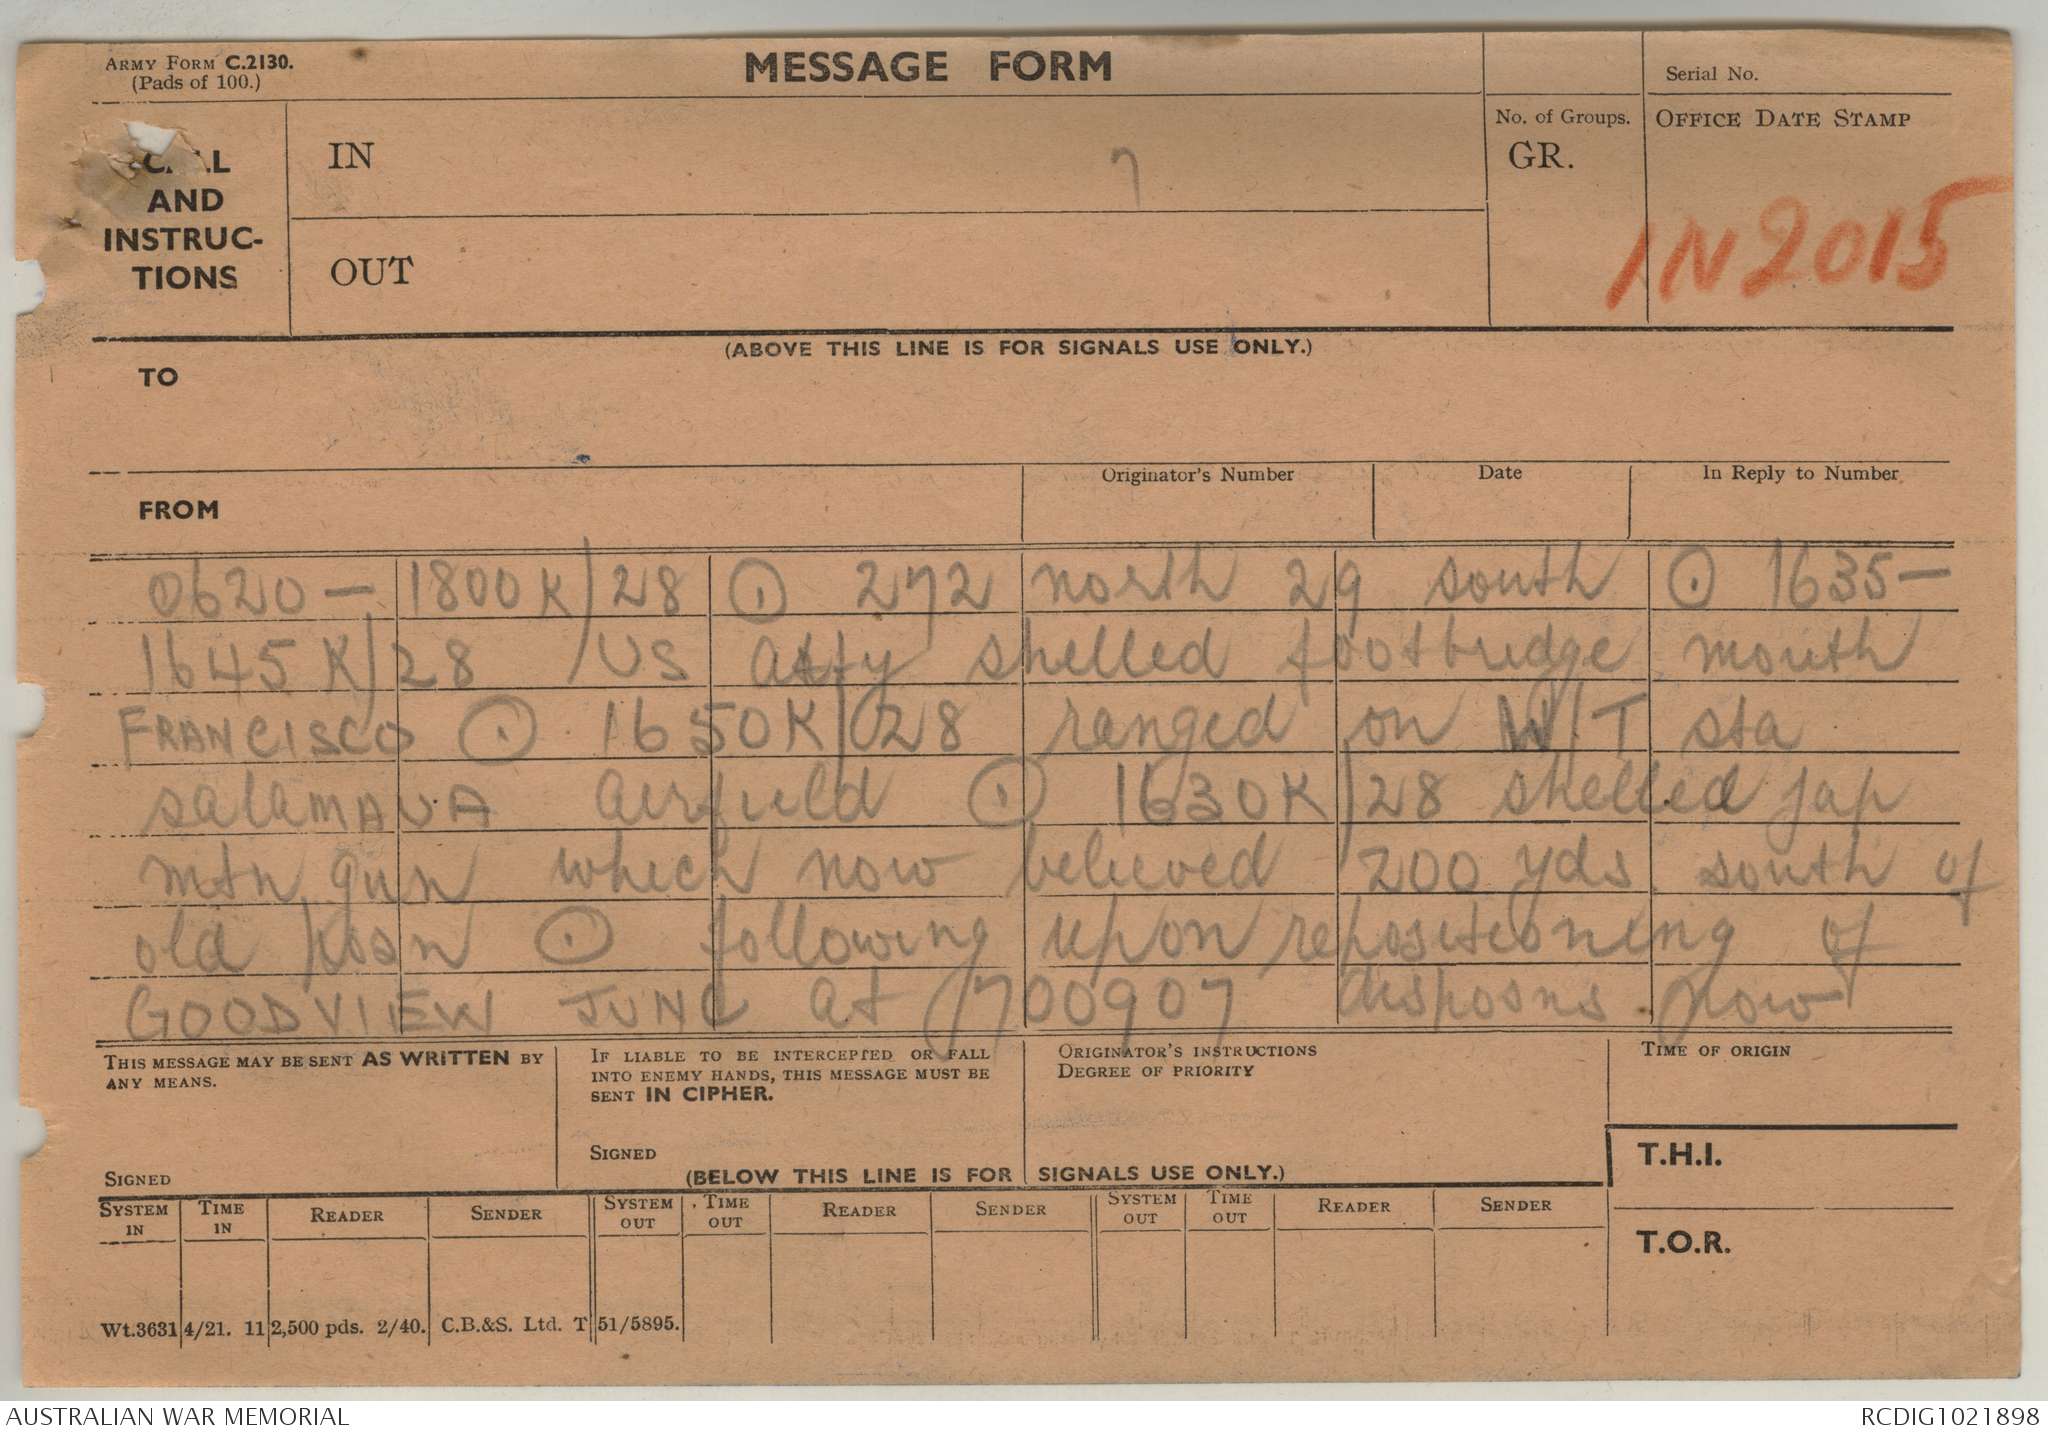 ARMY FORM C.2130.
(Pads of 100.)
MESSAGE FORM
Serial No.
CALL
AND
INSTRUC-
TIONS
IN
7
OUT
No. of Groups.
GR.
OFFICE DATE STAMP
IN2015
(ABOVE THIS LINE IS FOR SIGNALS USE ONLY.)
TO
FROM
Originator's Number
Date
In Reply to Number
0620 — 1800K/28 ⊙ 272 north 29 south ⊙ 1635 —
1645K/28 /US arty shelled footbridge mouth
FRANCISCO ⊙ 1650K/28 ranged on W/T sta
SALAMAUA airfield ⊙ 1630K/28 shelled jap
mtn gun which now believed 200 yds south of
old posn ⊙ following upon repositioning of
GOODVIEW JUNC at 700907 disposns now
THIS MESSAGE MAY BE SENT AS WRITTEN BY
ANY MEANS.
SIGNED
IF LIABLE TO BE INTERCEPTED OR FALL
INTO ENEMY HANDS, THIS MESSAGE MUST BE
SENT IN CIPHER.
SIGNED
ORIGINATOR'S INSTRUCTIONS
DEGREE OF PRIORITY
TIME OF ORIGIN
(BELOW THIS LINE IS FOR SIGNALS USE ONLY.)
T.H.I.
T.O.R.
SYSTEM IN
TIME IN
READER
SENDER
SYSTEM OUT
TIME OUT
READER
SENDER
SYSTEM OUT
TIME OUT
READER
SENDER
Wt.3631 4/21. 112,500 pds. 2/40. C.B.&S. Ltd. T51/5895.
AUSTRALIAN WAR MEMORIAL
RCDIG1021898